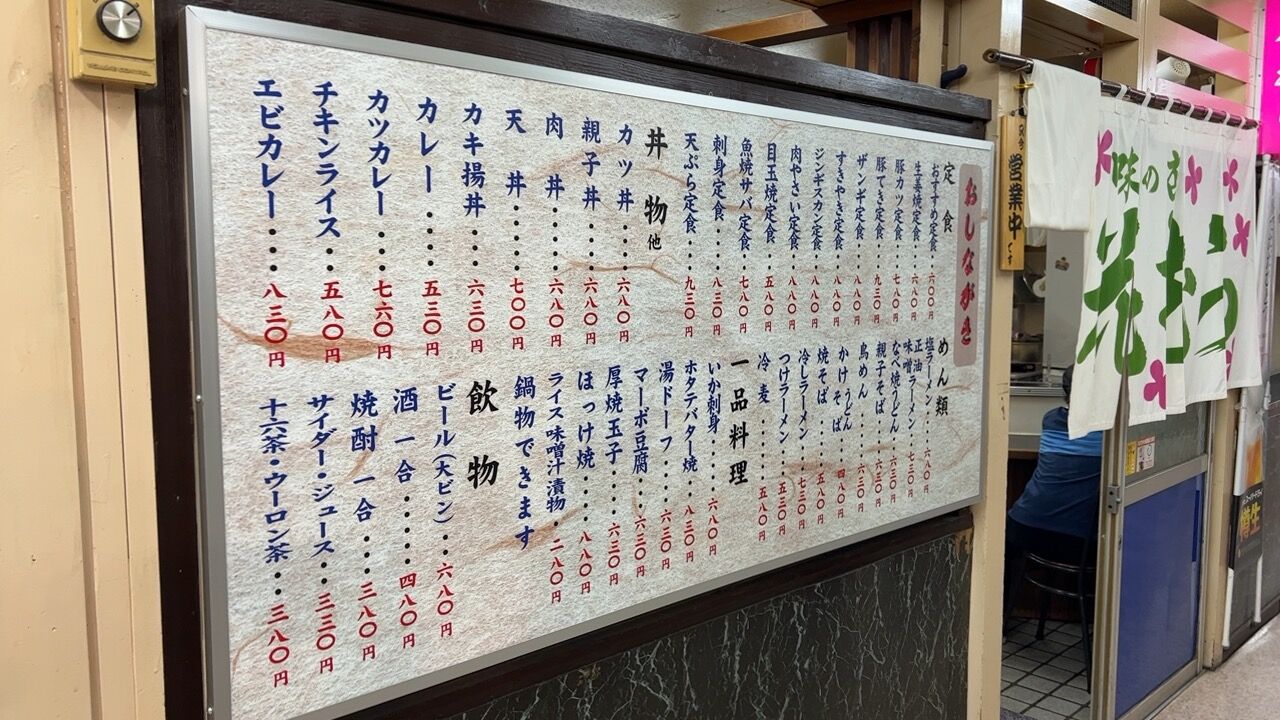 おしながき
定食
おすすめ定食・・六〇〇円
生姜焼定食・・・六八〇円
豚カツ定食・・・七八〇円
豚てき定食・・・九三〇円
ザンギ定食・・・八八〇円
すきやき定食・・八八〇円
ジンギスカン定食・・八八〇円
肉やさい定食・・八八〇円
目玉焼定食・・・五八〇円
魚焼サバ定食・・七八〇円
刺身定食・・・・八三〇円
天ぷら定食・・・九三〇円
丼物他
カツ丼・・・・・六八〇円
親子丼・・・・・六八〇円
肉丼・・・・・六八〇円
天丼・・・・・七〇〇円
カキ揚丼・・・・六三〇円
カレー・・・・・五三〇円
カツカレー・・・・七六〇円
チキンライス・・・五八〇円
エビカレー・・・・八三〇円
めん類
塩ラーメン・・・・六八〇円
正油ラーメン
味噌ラーメン・・・七三〇円
なべ焼うどん・・・六三〇円
親子そば・・・・六三〇円
鳥めん・・・・・六三〇円
かけうどん
そば・・・四八〇円
焼そば・・・・・五八〇円
冷しラーメン・・・七三〇円
つけラーメン・・・五三〇円
冷麦・・・・・・五八〇円
一品料理
いか刺身・・・・六八〇円
ホタテバター焼・・八三〇円
湯ドーフ・・・・六三〇円
マーボ豆腐・・・六三〇円
厚焼玉子・・・・六三〇円
ほっけ焼・・・・八八〇円
ライス味噌汁漬物・二八〇円
鍋物できます
飲物
ビール(大ビン)・・・六八〇円
酒一合・・・・・四八〇円
焼酎一合・・・・三八〇円
サイダー・ジュース・・三三〇円
十六茶・ウーロン茶・・三八〇円
営業中
です
味のき